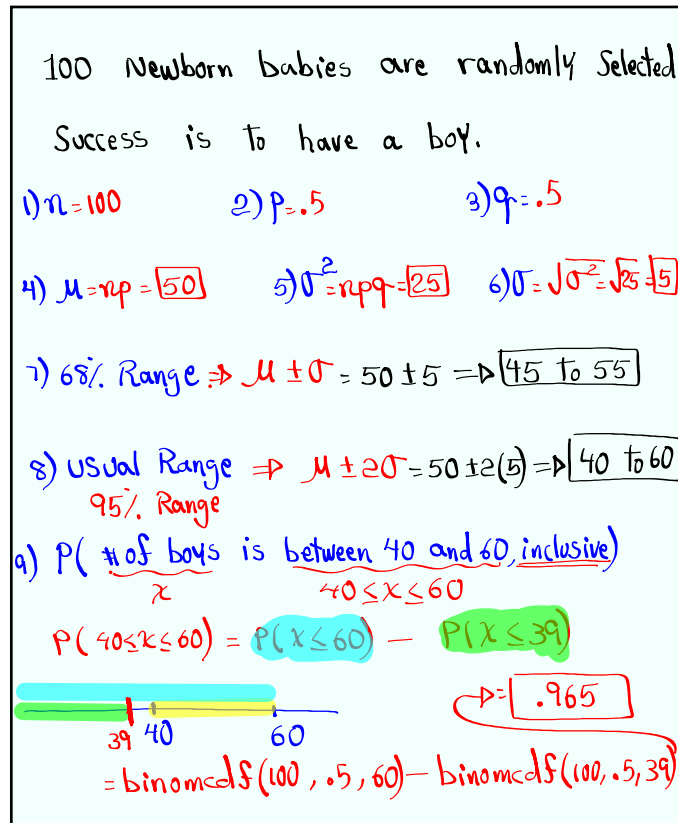 100 Newborn babies are randomly Selected
Success is to have a boy.
1) n=100 2) p=.5 3) q=.5
4) μ=np=50 5) σ²=npq=25 6) σ=√σ²=√25=5
7) 68% Range ⇒ μ±σ=50±5 ⇒ 45 to 55
8) usual Range ⇒ μ±2σ=50±2(5) ⇒ 40 to 60
95% Range
9) P( # of boys is between 40 and 60, inclusive)
x 40≤x≤60
P(40≤x≤60) = P(x≤60) - P(x≤39)
⇒= .965
39 40 60
=binomcdf(100, .5, 60) - binomcdf(100, .5, 39)